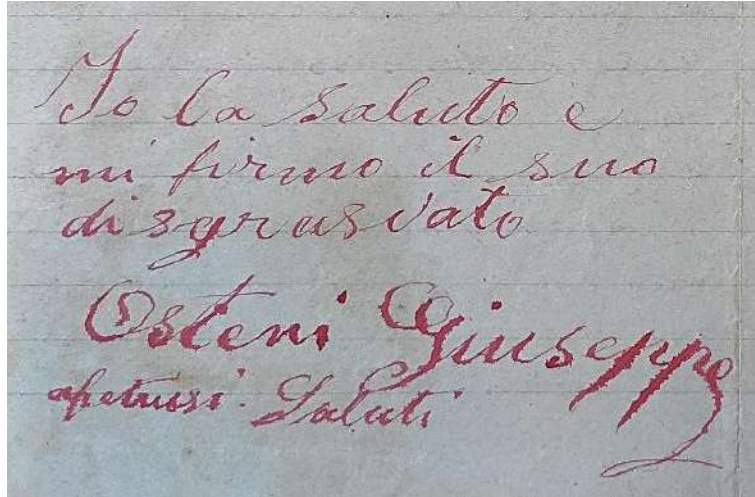 Io la saluto e
mi firmo il suo
disgrasiato
Osteni Giuseppe
afetuosi. Saluti